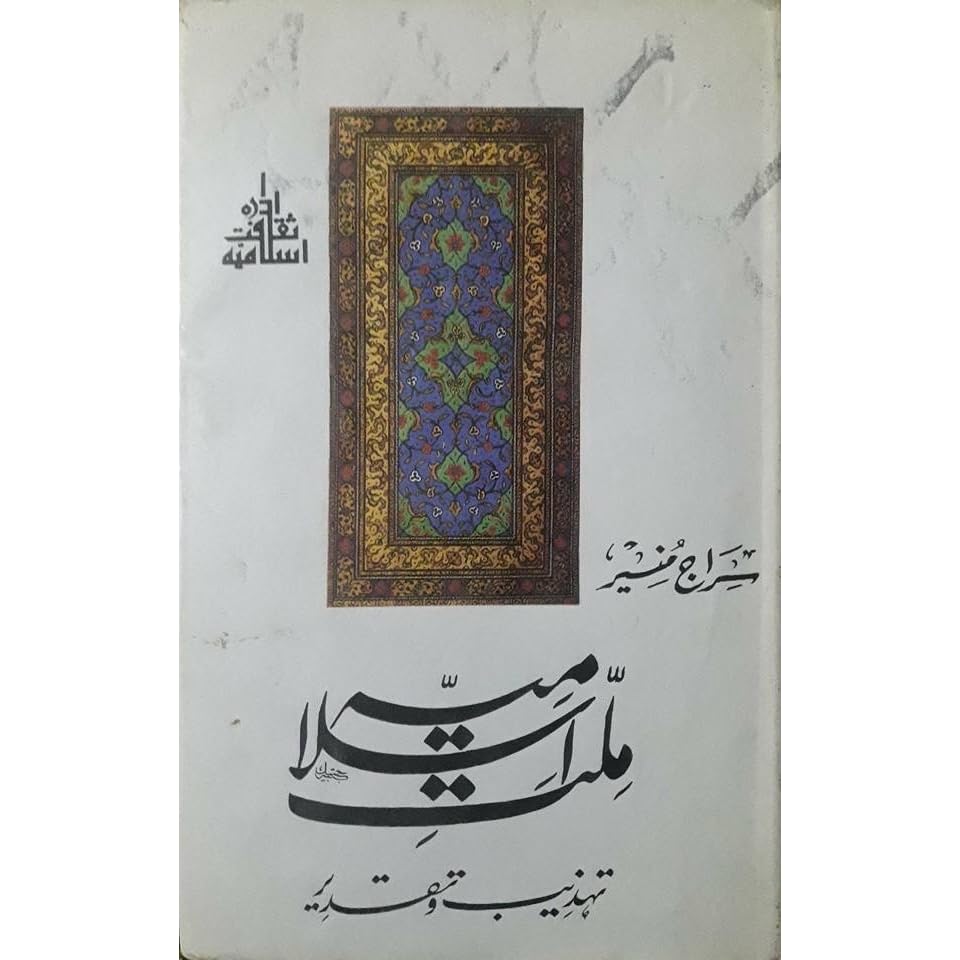 ادارہ
ثقافت
اسلامیہ
سِرَاج مُنِیر
مِلّتِ اِسلامیہ
تہذیب و تقدیر